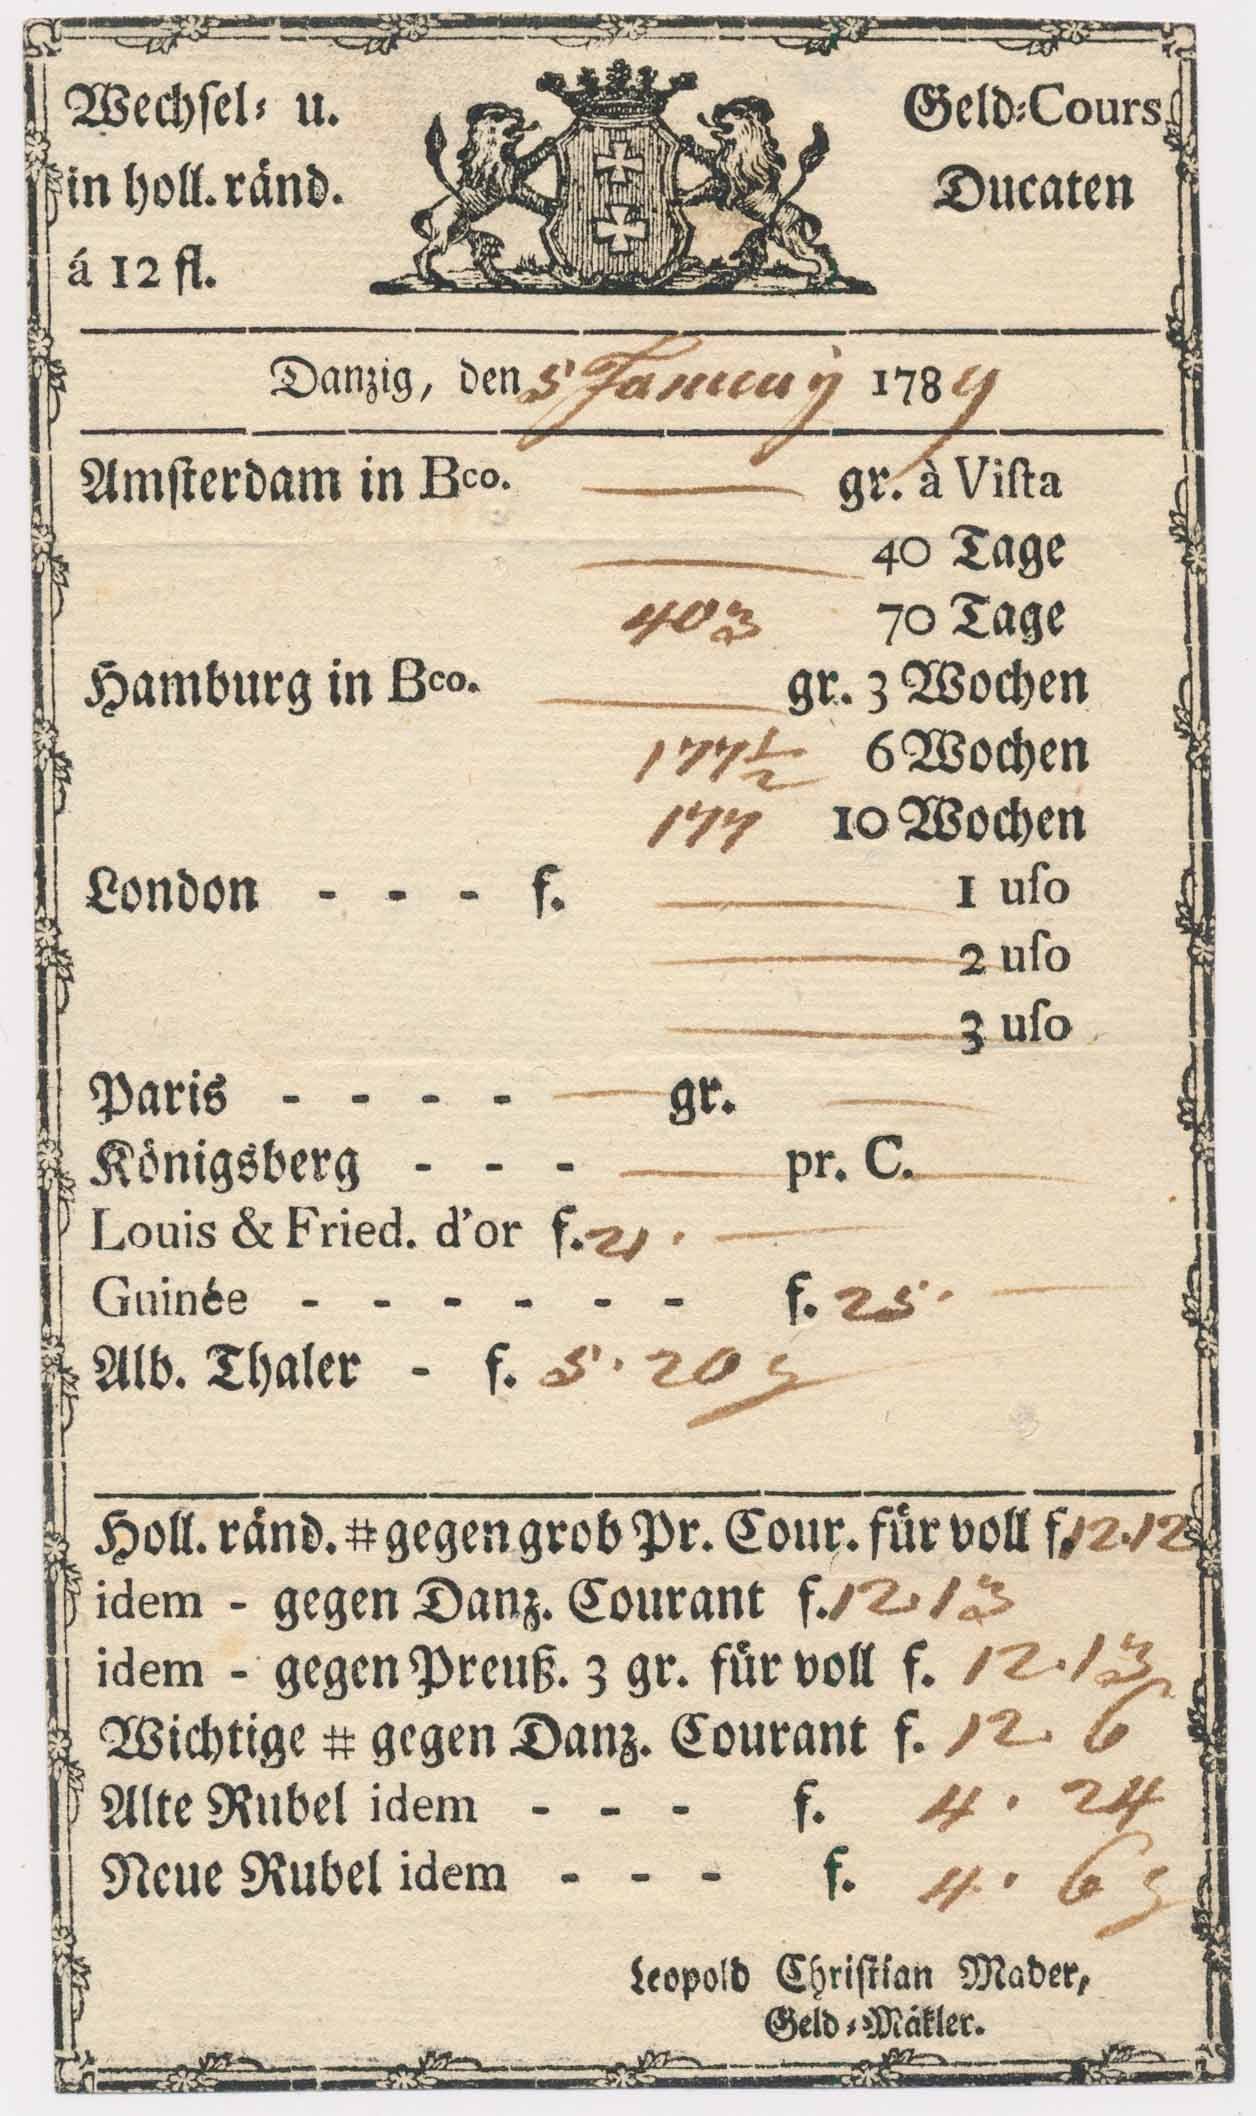 Wechſel- u. Geld-Cours
in holl. ränd. Ducaten
á 12 fl.
Danzig, den 5 January 1789
Amſterdam in Bco. — gr. à Viſta
— 40 Tage
403 70 Tage
Hamburg in Bco. — gr. 3 Wochen
177 1/2 6 Wochen
177 10 Wochen
London - - - f. — 1 uſo
— 2 uſo
— 3 uſo
Paris - - - - — gr. —
Königsberg - - - — pr. C. —
Louis & Fried. d'or f. 21. —
Guinée - - - - - - f. 25. —
Alb. Thaler - f. 5. 20
Holl. ränd. # gegen grob Pr. Cour. für voll f. 12.12
idem - gegen Danz. Courant f. 12.13
idem - gegen Preuß. 3 gr. für voll f. 12.13
Wichtige # gegen Danz. Courant f. 12. 6
Alte Rubel idem - - - f. 4. 24
Neue Rubel idem - - - f. 4. 6
Leopold Chriſtian Mader,
Geld-Mäkler.